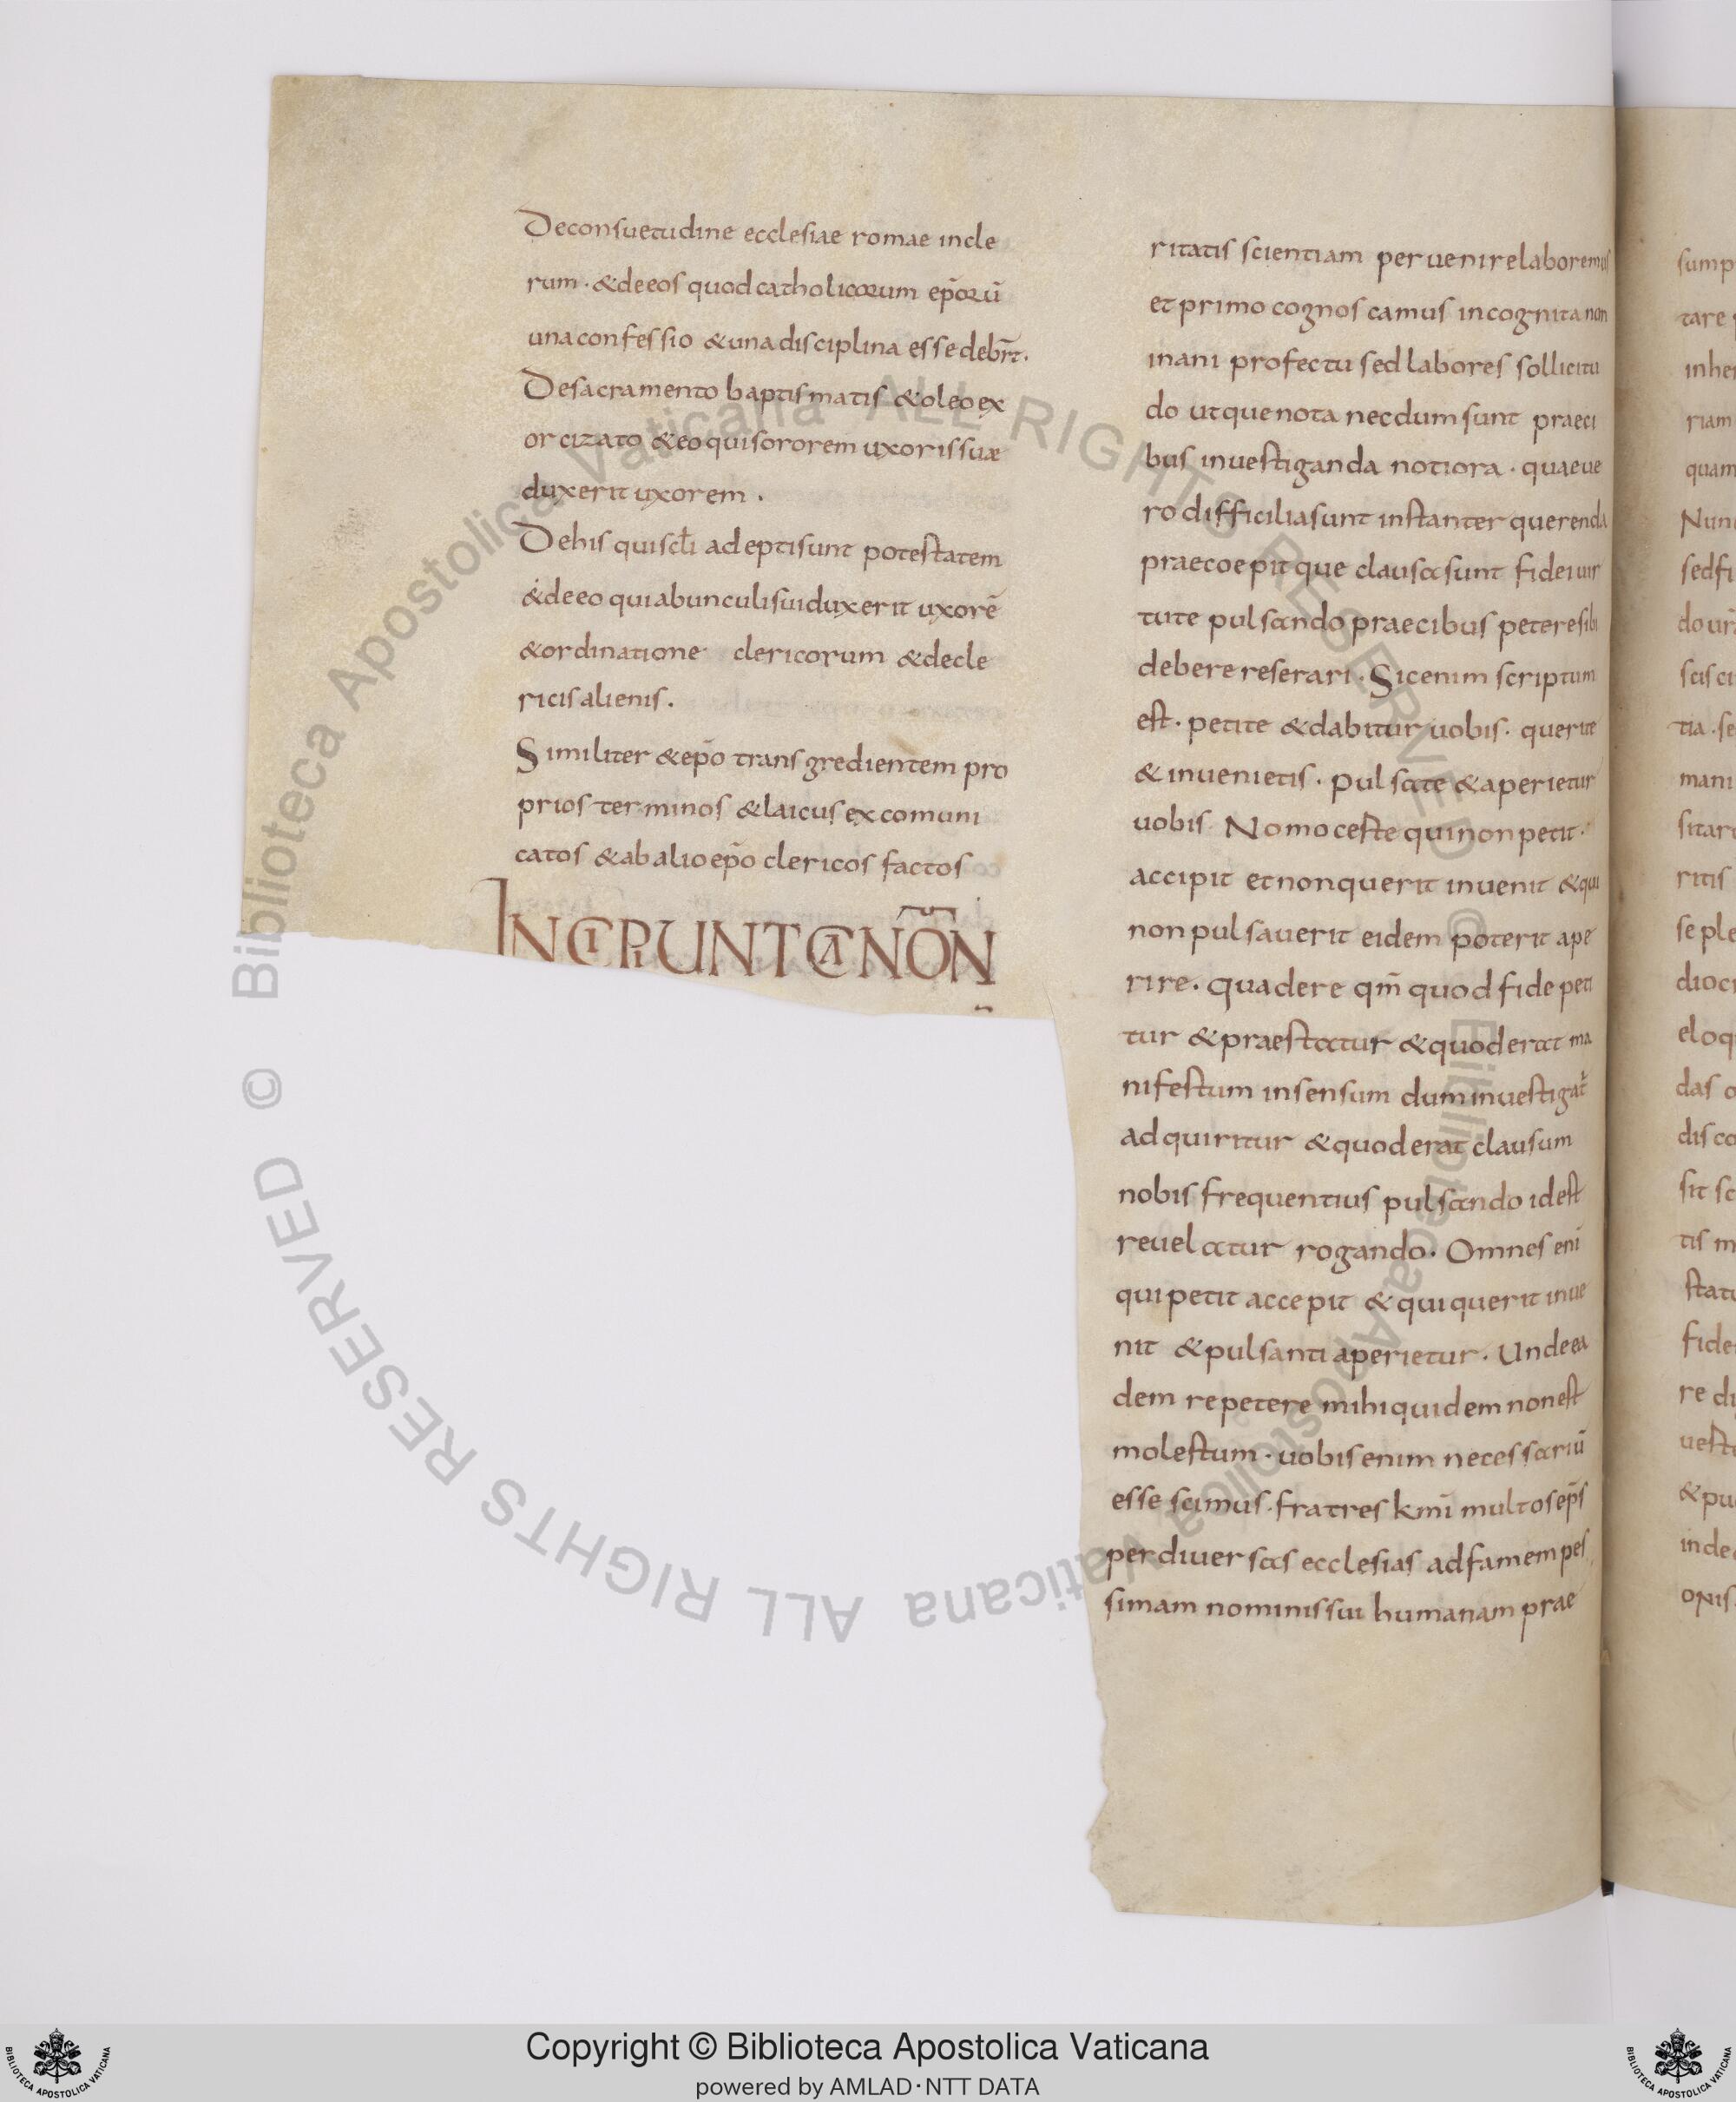 De consuetudine ecclesiae romae in cle
rum · & de eos quod catholicorum ep̄orū
una confessio & una disciplina esse debr̄t.
De sacramento baptismatis & oleo ex
orcizato & eo qui sororem uxoris suae
duxerit uxorem .
De his qui scl̄i adepti sunt potestatem
& de eo qui abunculi sui duxerit uxorē
& ordinatione clericorum & de cle
ricis alienis .
Similiter & ep̄o transgredientem pro
prios terminos & laicus excomuni
catos & ab alio ep̄o clericos factos
INCIPIUNT CANŌN
ritatis scientiam peruenire laboremus
et primo cognoscamus incognita non
inani profectu sed labores sollicitu
do ut que nota necdum sunt praeci
bus inuestiganda notiora · quae ue
ro difficilia sunt instanter querenda
praecoepit que clausa sunt fidei uir
tute pulsando praecibus petere sibi
debere reserari . Sic enim scriptum
est . petite & dabitur uobis . querite
& inuenietis . pulsate & aperietur
uobis Nomo ceste qui non petit .
accipit et non querit inuenit & qui
non pulsauerit eidem poterit ape
rire . quadere qm̄ quod fide peti
tur & praestatur & quod erat ma
nifestum in sensum dum inuestigat̄
adquiritur & quod erat clausum
nobis frequentius pulsando id est
reuelatur rogando . Omnes enī
qui petit accepit & qui querit inue
nit & pulsanti aperietur . Unde ea
dem repetere mihi quidem non est
molestum · uobis enim necessariū
esse scimus . fratres kmī multos ep̄s
per diuersas ecclesias ad famem pes
simam nominis sui humanam prae
sump
tare
inhe
riam
quam
Nun
sed fi
do ur
scisci
tia . se
mani
sitar
ritis
se ple
dioc
eloq
das
disco
sit sc
tis m
statu
fide
re di
uest
& pu
inde
opis
© Biblioteca Apostolica Vaticana ALL RIGHTS RESERVED © Biblioteca Apostolica Vaticana ALL RIGHTS RESERVED
Copyright © Biblioteca Apostolica Vaticana
powered by AMLAD·NTT DATA
BIBLIOTECA APOSTOLICA VATICANA
BIBLIOTECA APOSTOLICA VATICANA